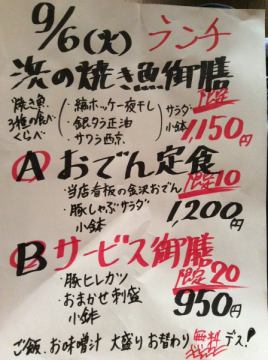 9/6(火) ランチ
浜の焼き魚御膳
焼き魚 3種の食べくらべ
・縞ホッケ一夜干し
・銀タラ正油
・サワラ西京
サラダ
小鉢
限定
1,150円
A おでん定食
・当店看板の金沢おでん
限定10
・豚しゃぶサラダ
小鉢
1,200円
B サービス御膳
・豚ヒレカツ
限定20
・おまかせ刺盛
小鉢
950円
ご飯、お味噌汁 大盛りお替わり 無料デス!